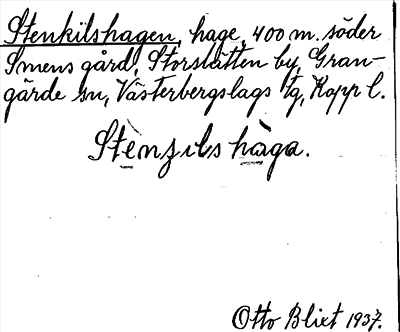 Stenkilshagen, hage, 400 m. söder
Smens gård, Storslätten by, Gran-
gärde sn, Västerbergslags tg, Kopp l.
Stènʒils hàga.
Otto Blixt 1937.